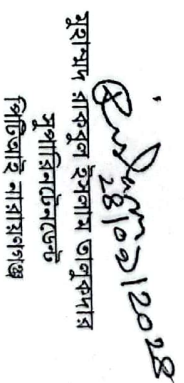 ২৪/০১/২০২৪
মুহাম্মদ রাকবুল ইসলাম তালুকদার
সুপারিনটেনডেন্ট
পিটিআই নারায়ণগঞ্জ